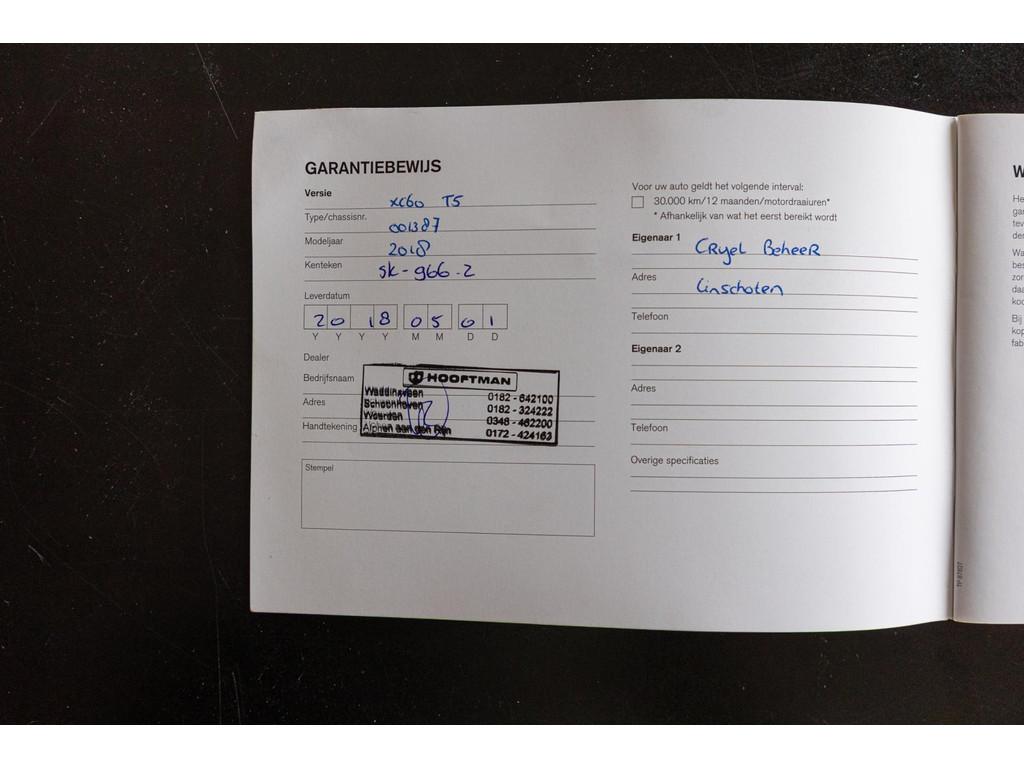 GARANTIEBEWIJS
Versie xc60 T5
Type/chassisnr. 001387
Modeljaar 2018
Kenteken SK-966-Z
Leverdatum
20 18 05 01
Y Y Y Y M M D D
Dealer
Bedrijfsnaam
Adres
Handtekening
HOOFTMAN
Waddinxveen 0182 - 642100
Schoonhoven 0182 - 324222
Woerden 0348 - 462200
Alphen aan den Rijn 0172 - 424163
Stempel
Voor uw auto geldt het volgende interval:
30.000 km/12 maanden/motordraaiuren*
* Afhankelijk van wat het eerst bereikt wordt
Eigenaar 1 CRyel BeheeR
Adres Linschoten
Telefoon
Eigenaar 2
Adres
Telefoon
Overige specificaties
TP 87827
W
He
ga
tev
der
Wa
bes
zor
daa
koo
Bij
kop
fab